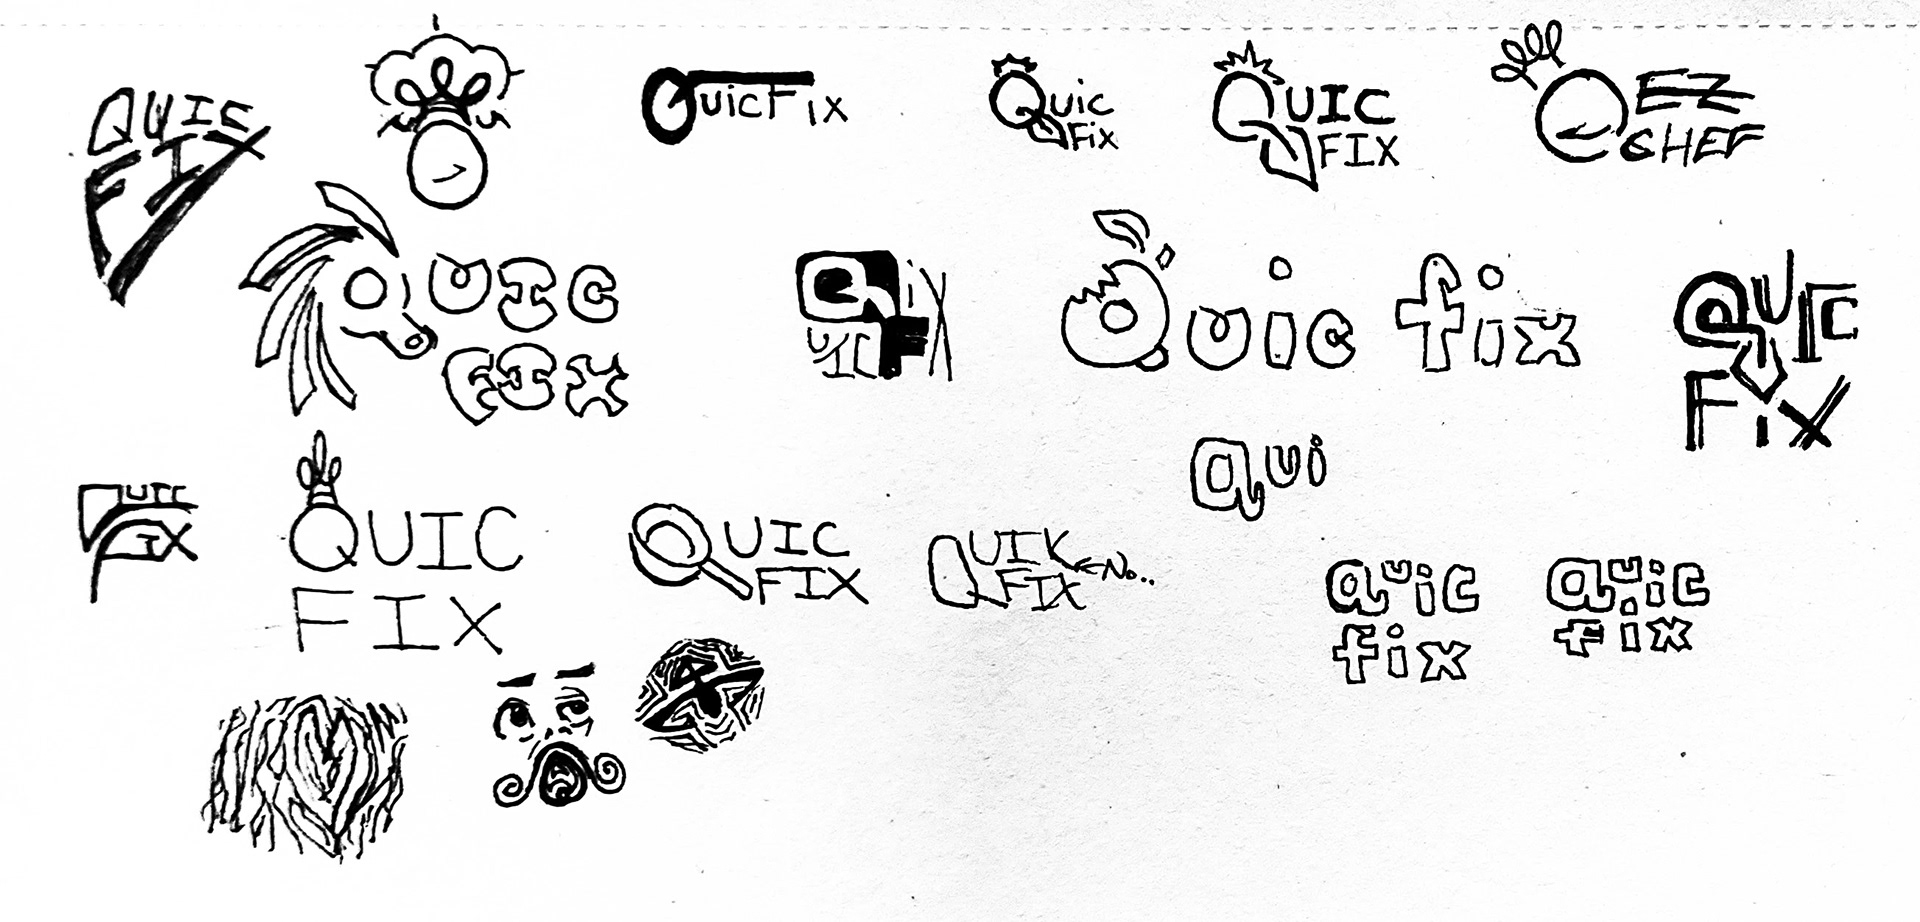 QUIC
FIX
QuicFix
Quic
Fix
QUIC
FIX
EZ
CHEF
UIC
FIX
Q
UIC
FIX
Quic fix
QUIC
FIX
qui
QUIC
FIX
QUIC
FIX
QUIC
FIX
QUIK ← No..
FIX
quic
fix
quic
fix